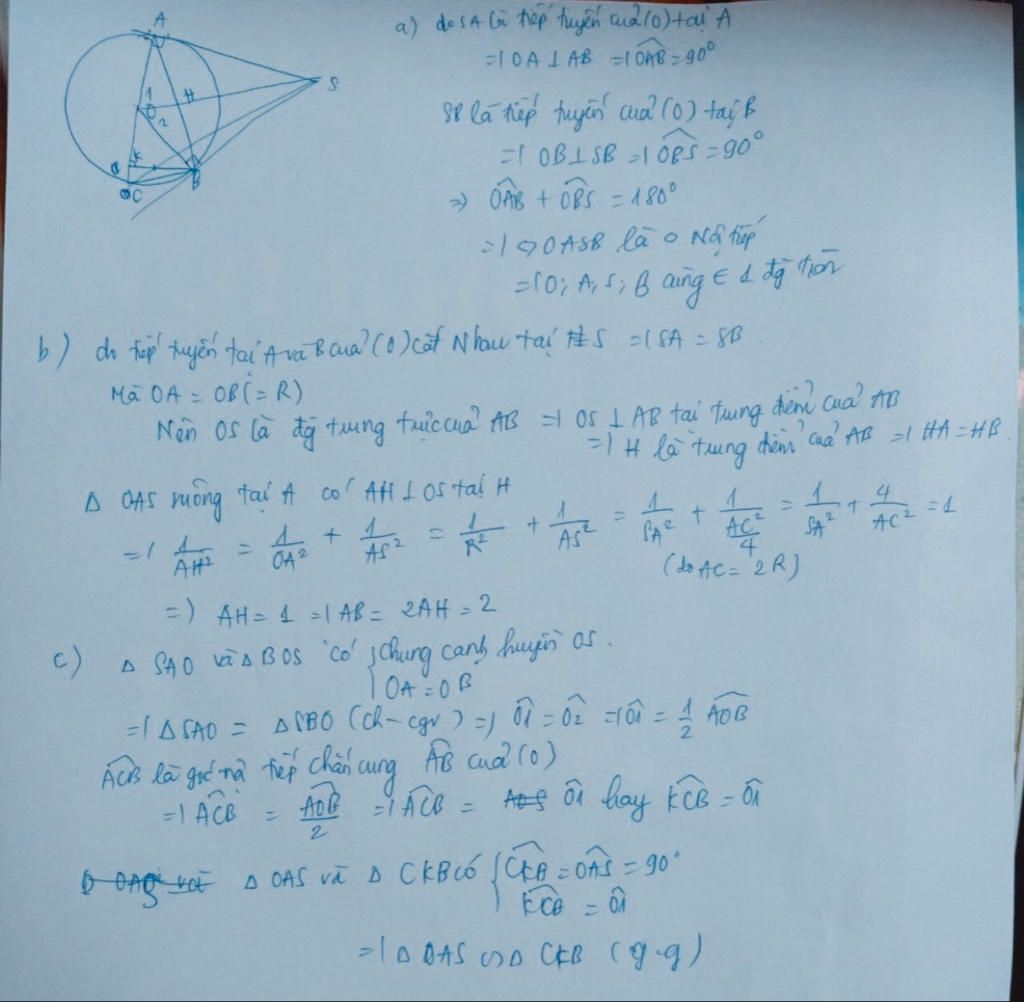 A
S
H
1
O
2
K
B
C
a) do SA là tiếp tuyến cuả (O) tại A
=) OA ⊥ AB =) \widehat{OAB} = 90°
SB là tiếp tuyến cuả (O) tại B
=) OB ⊥ SB =) \widehat{OBS} = 90°
=> \widehat{OAB} + \widehat{OBS} = 180°
=) ◇ OASB là ◇ Nội tiếp
=) O; A; S; B cùng ∈ 1 đg tròn
b) do tiếp tuyến tại A và B cuả (O) cắt Nhau tại S =) SA = SB
Mà OA = OB (= R)
Nên OS là đg trung trực cuả AB =) OS ⊥ AB tại trung điểm cuả AB
=) H là trung điểm cuả AB =) HA = HB.
Δ OAS vuông tại A có AH ⊥ OS tại H
=) \frac{1}{AH^2} = \frac{1}{OA^2} + \frac{1}{AS^2} = \frac{1}{R^2} + \frac{1}{AS^2} = \frac{1}{SA^2} + \frac{1}{\frac{AC^2}{4}} = \frac{1}{SA^2} + \frac{4}{AC^2} = 1
(do AC = 2R)
=) AH = 1 =) AB = 2AH = 2
c) Δ SAO và Δ BOS có { chung cạnh huyền OS.
OA = OB
=) Δ SAO = Δ SBO (ch - cgv) =) \widehat{O1} = \widehat{O2} =) \widehat{O1} = \frac{1}{2} \widehat{AOB}
\widehat{ACB} là góc nội tiếp chắn cung \widehat{AB} cuả (O)
=) \widehat{ACB} = \frac{\widehat{AOB}}{2} =) \widehat{ACB} = \widehat{O1} hay \widehat{KCB} = \widehat{O1}
Δ OAS và Δ CKB có { \widehat{CKB} = \widehat{OAS} = 90°
\widehat{KCB} = \widehat{O1}
=) Δ OAS ∽ Δ CKB (g.g)